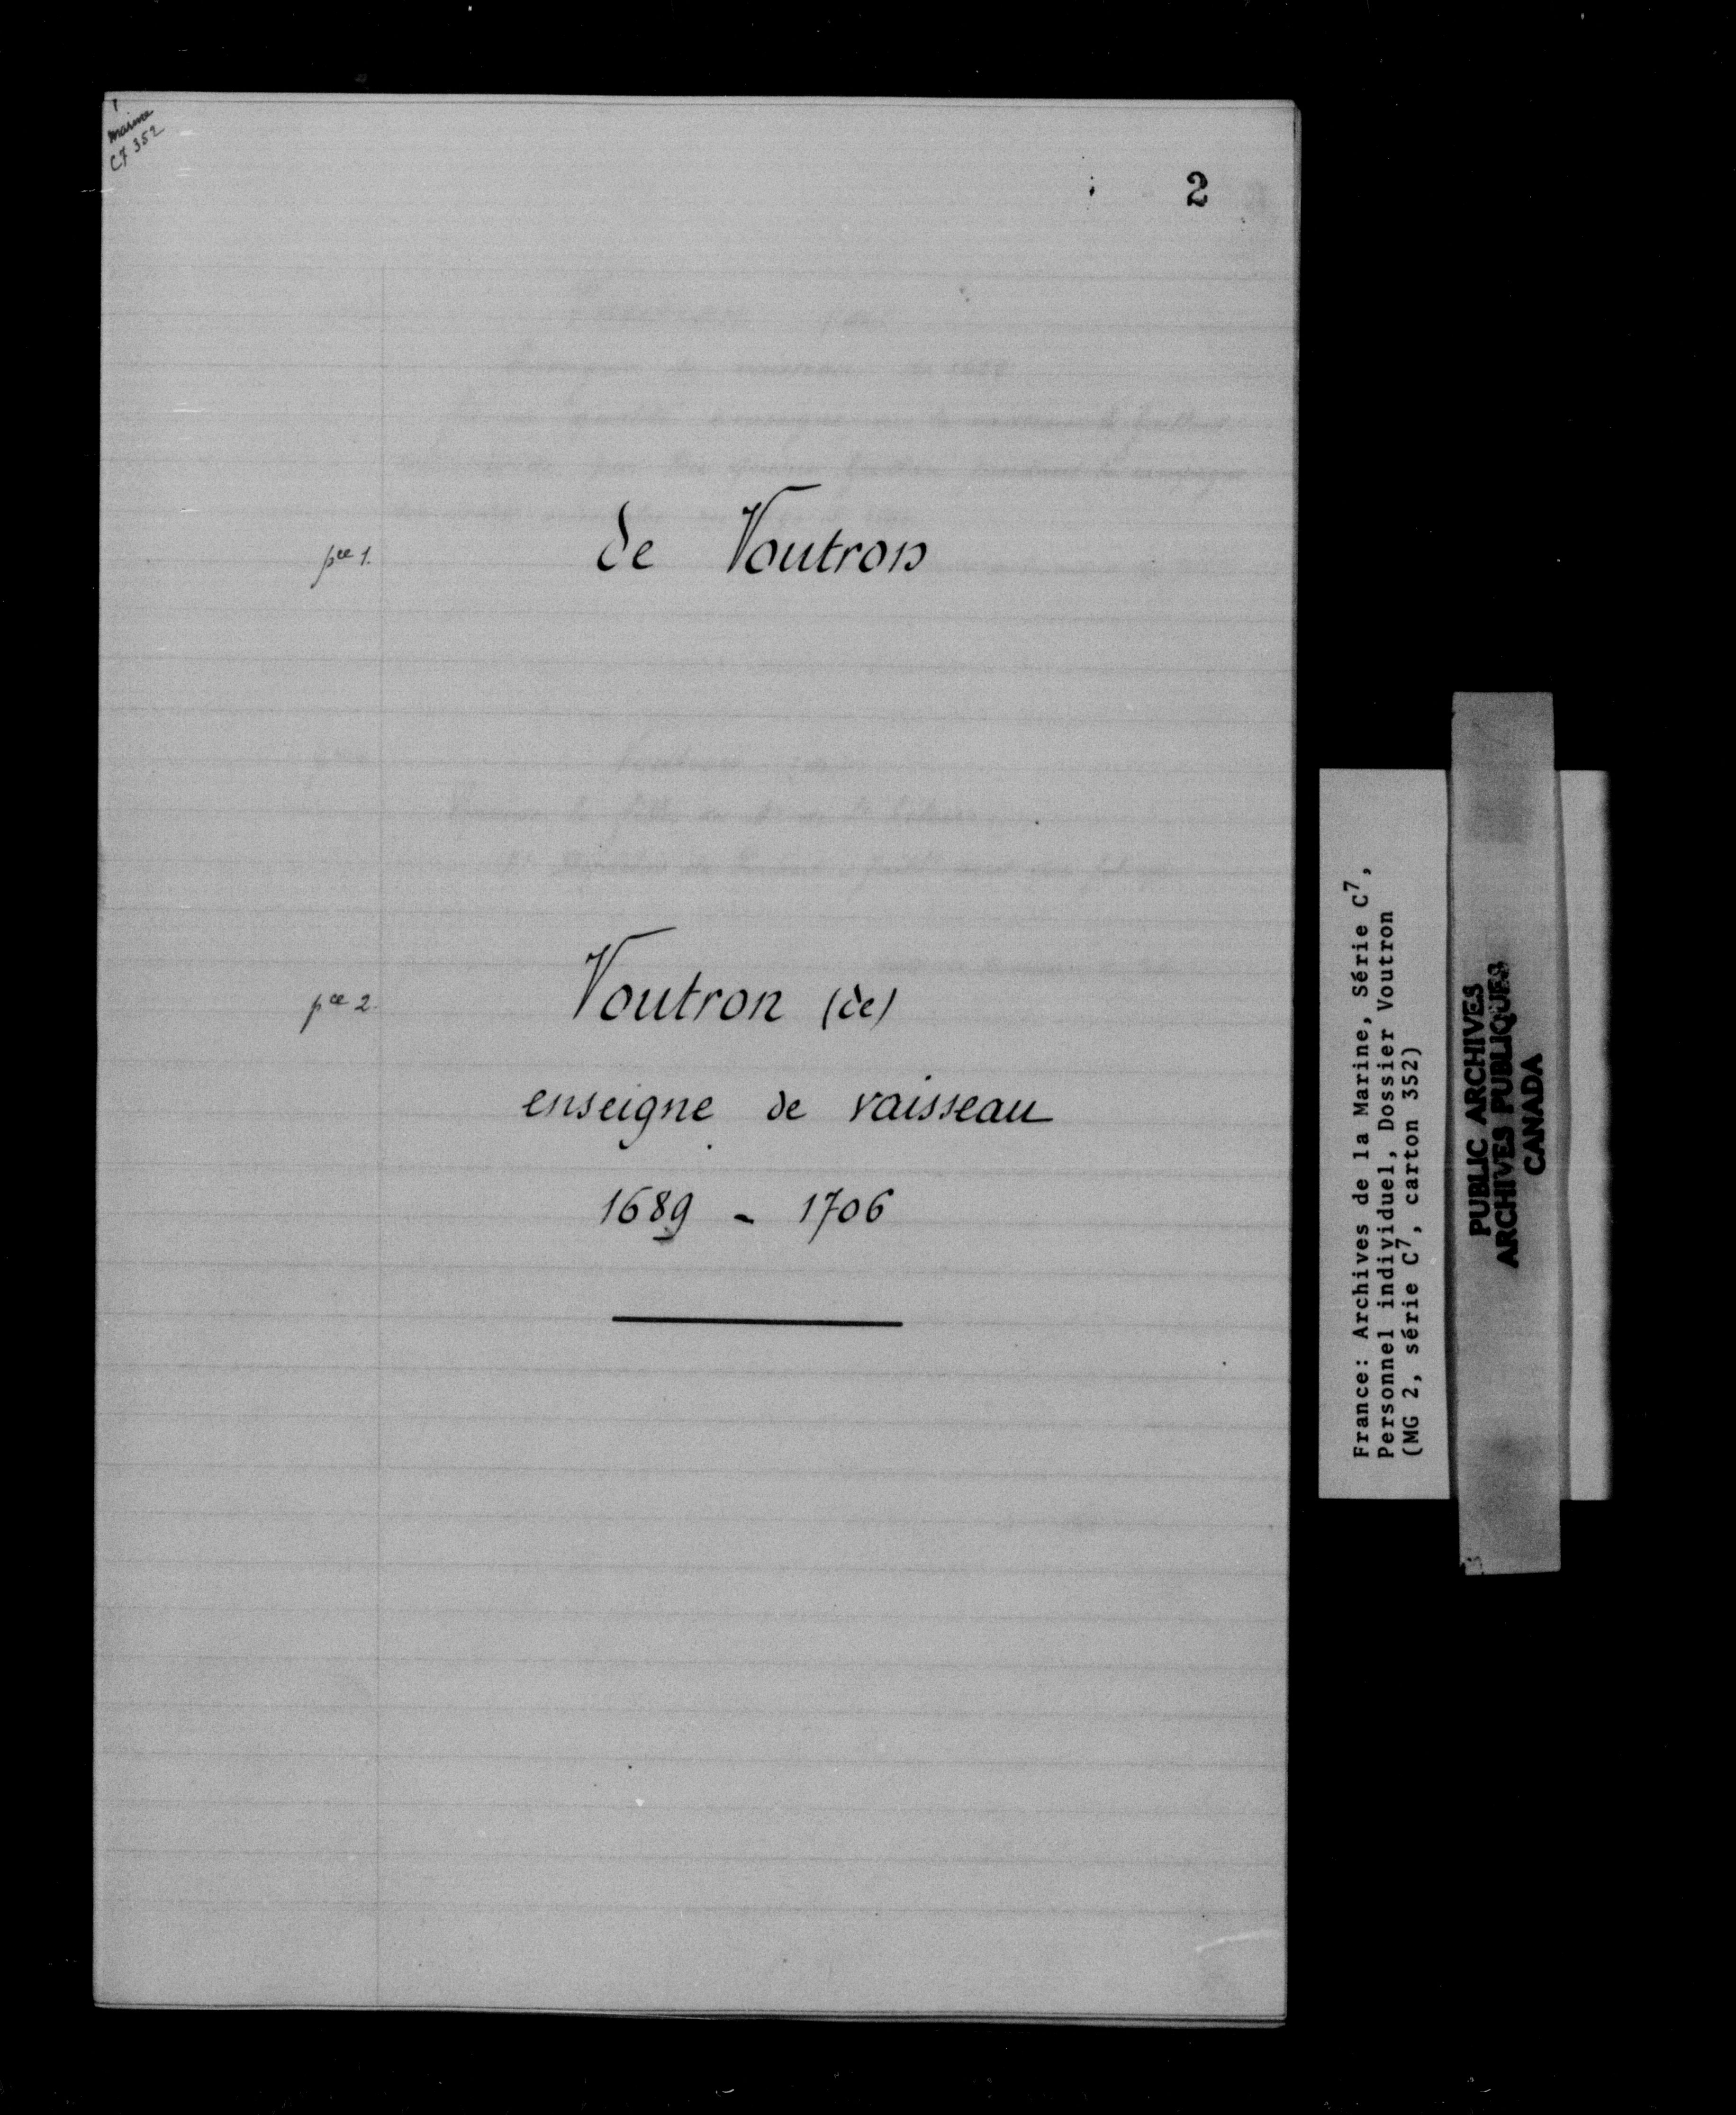 1
Marine
C7 352
2
pce 1.
de Voutron
pce 2.
Voutron (de)
enseigne de vaisseau
1689 - 1706
France: Archives de la Marine, Série C7,
Personnel individuel, Dossier Voutron
(MG 2, série C7, carton 352)
PUBLIC ARCHIVES
ARCHIVES PUBLIQUES
CANADA